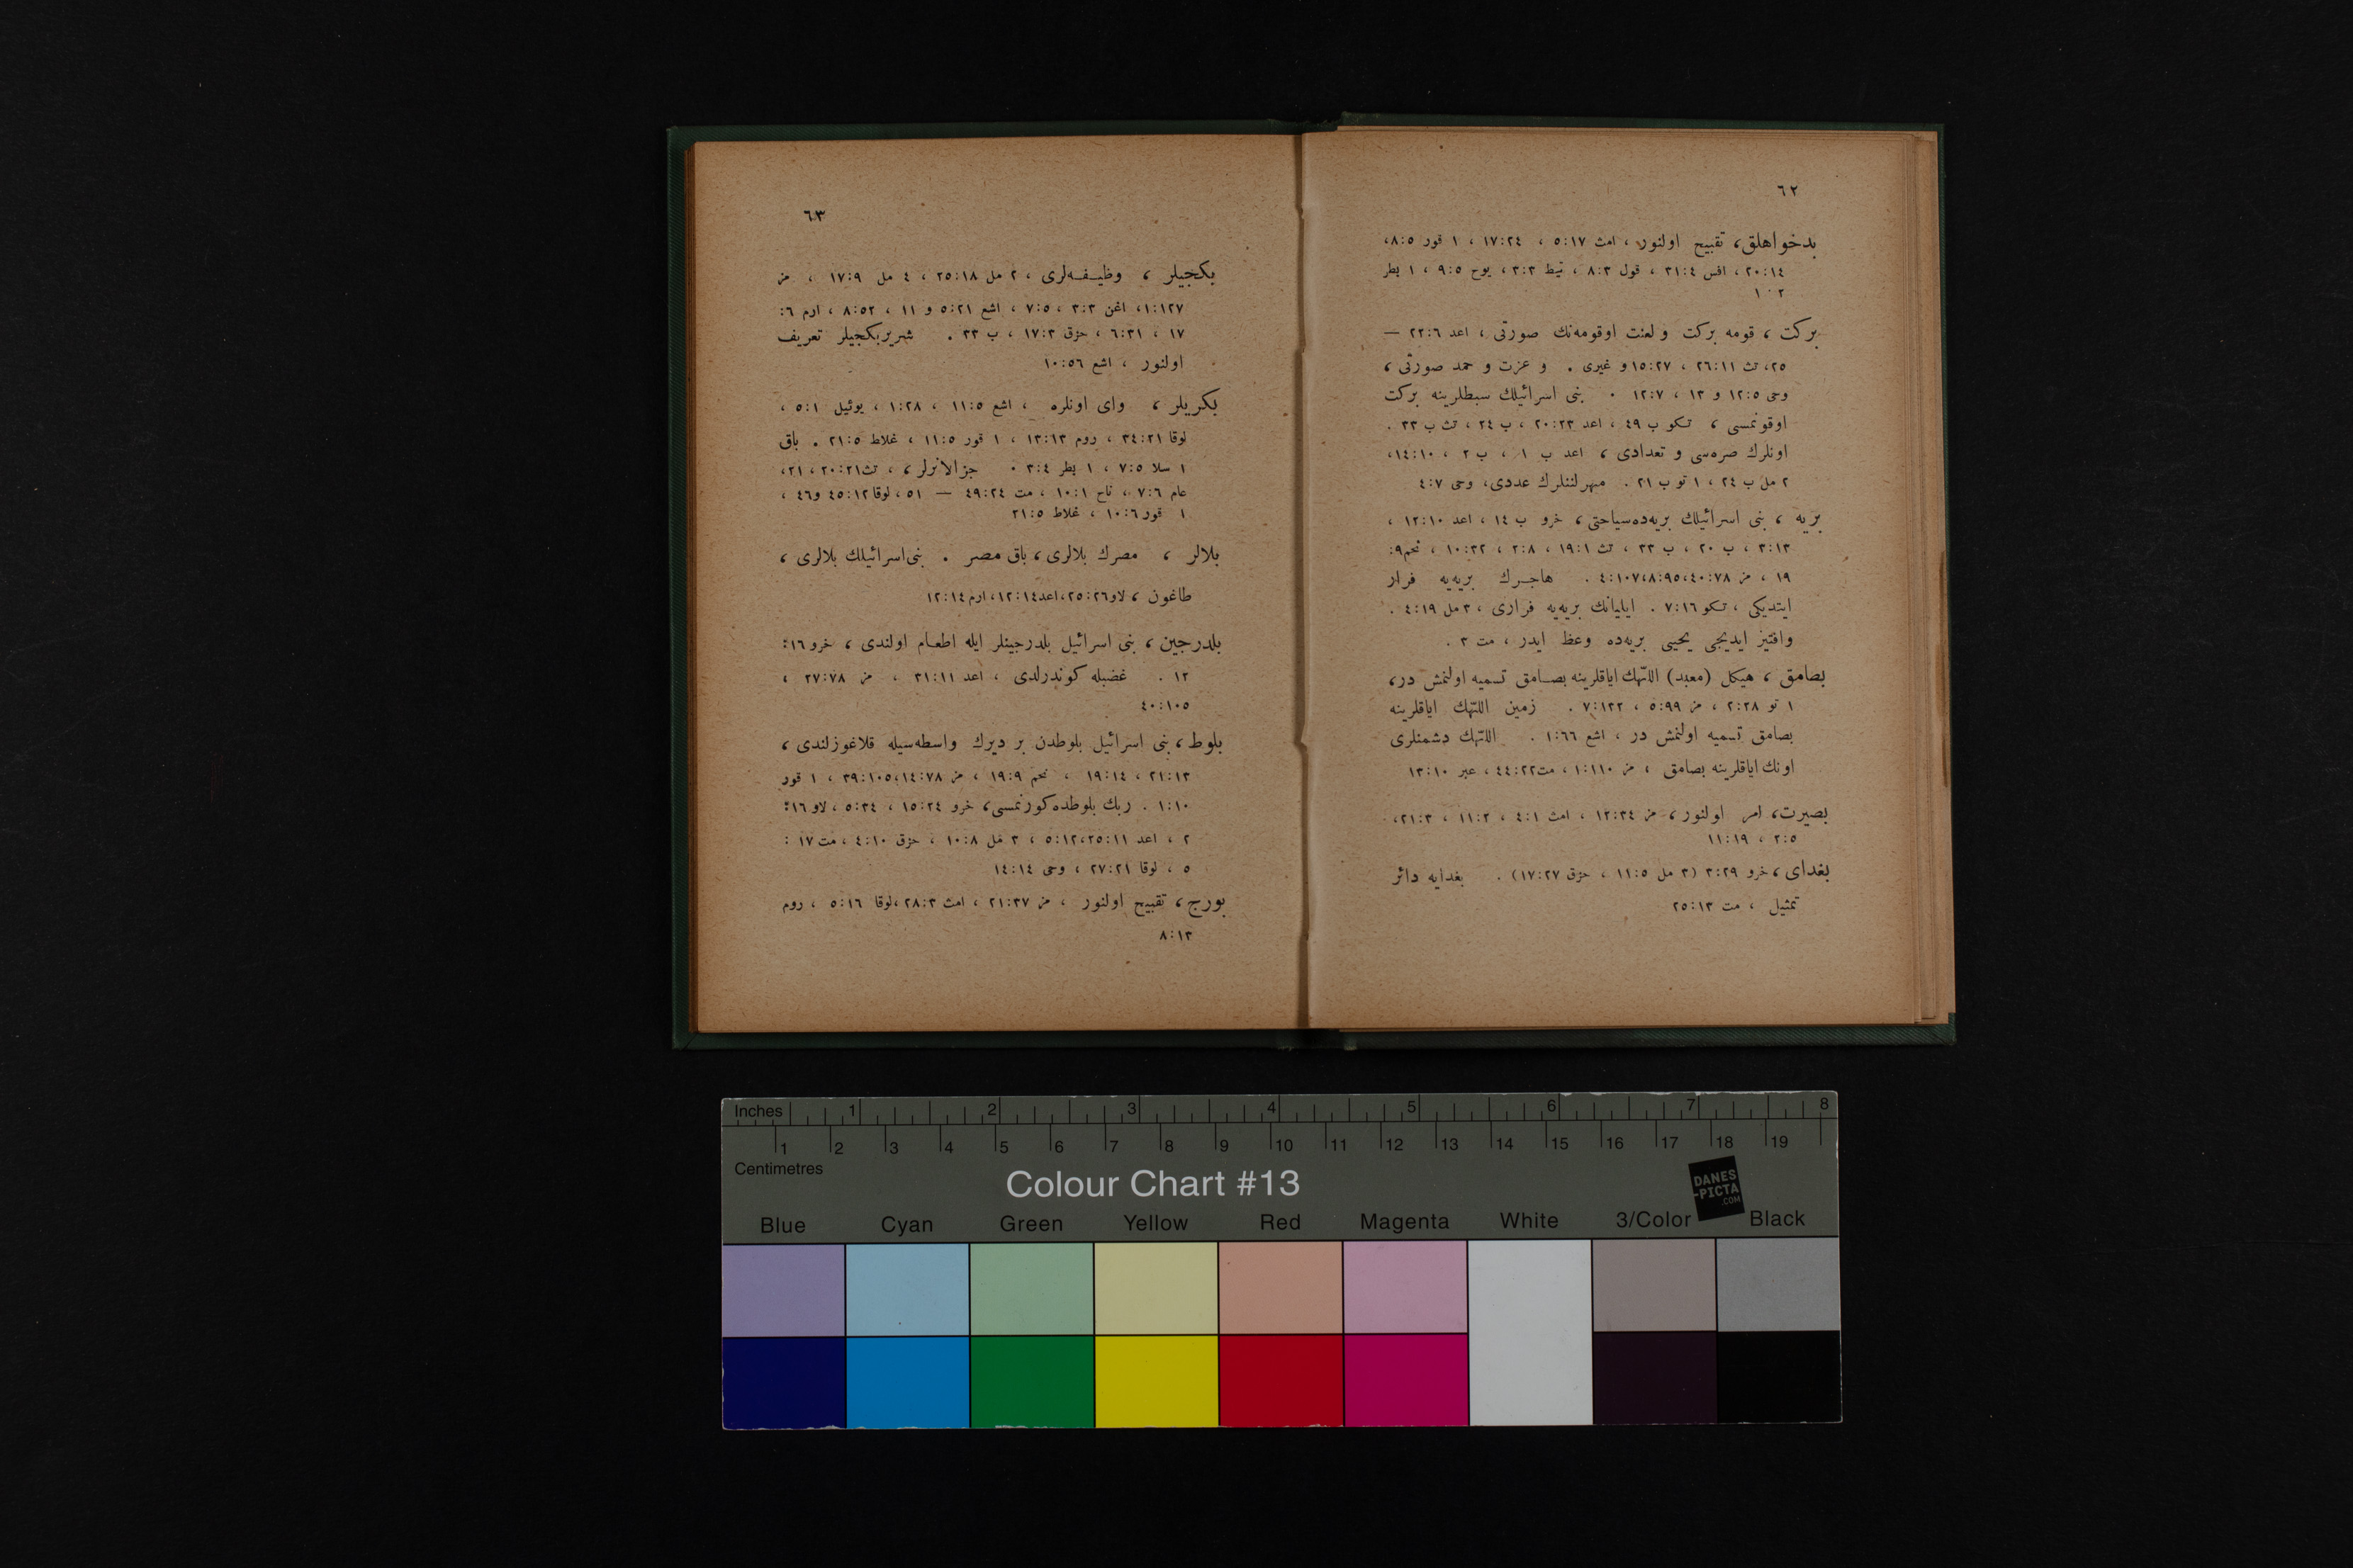 ٦٢
بدخواهلق، تقبیح اولنور، امث ٥:١٧ ، ١٧:٢٤ ، ١ قور ٨:٥،
٢٠:١٤ ، افس ٣١:٤ ، قول ٨:٣ ، تیط ٣:٣ ، یوح ٩:٥ ، ١ بطر
برکت ، قومه برکت و لعنت اوقومه‌نك صورتی ، اعد ٢٢:٦ —
٢٥، تث ٢٦:١١ ، ١٥:٢٧ و غیری . و عزت و حمد صورتی ،
وحی ١٢:٥ و ١٣ ، ١٢:٧ . بنی اسرائیلك سبطلرینه برکت
اوقونمسی ، تکو ب ٤٩ ، اعد ٢٠:٢٣ ، ب ٢٤ ، تث ب ٣٣ .
اونلرك صره‌سی و تعدادی ، اعد ب ١ ، ب ٢ ، ١٤:١٠،
٢ مل ب ٢٤ ، ١ تو ب ٢١ . مهرلننلرك عددی، وحی ٤:٧
بریه ، بنی اسرائیلك بریه‌ده سیاحتی ، خرو ب ١٤ ، اعد ١٢:١٠ ،
٣:١٣ ، ب ٢٠ ، ب ٣٣ ، تث ١٩:١ ، ٢:٨ ، ١٠:٣٢ ، نحم ٩:
١٩ ، مز ٤٠:٧٨، ٨:٩٥، ٤:١٠٧ . هاجرك بریه‌یه فرار
ایتدیکی ، تکو ٧:١٦ . ایلیانك بریه‌یه فراری ، ٣ مل ٤:١٩ .
وافتیز ایدیجی یحیی بریه‌ده وعظ ایدر ، مت ٣ .
بصامق ، هیکل (معبد) اللّهك ایاقلرینه بصامق تسمیه اولنمش در،
١ تو ٢:٢٨ ، مز ٥:٩٩ ، ٧:١٣٢ . زمین اللّهك ایاقلرینه
بصامق تسمیه اولنمش در ، اشع ١:٦٦ . اللّهك دشمنلری
اونك ایاقلرینه بصامق ، مز ١:١١٠ ، مت ٤٤:٢٢ ، عبر ١٣:١٠
بصیرت، امر اولنور، مز ١٢:٣٤ ، امث ٤:١ ، ١١:٢ ، ٢١:٣،
٢:٥ ، ١١:١٩
بغدای ، خرو ٢:٢٩ (٣ مل ١١:٥ ، حزق ١٧:٢٧) . بغدایه دائر
تمثیل ، مت ٢٥:١٣
٦٣
بکجیلر ، وظیفه‌لری ، ٢ مل ٢٥:١٨ ، ٤ مل ١٧:٩ ، مز
١:١٢٧، اغن ٣:٣ ، ٧:٥ ، اشع ٥:٢١ و ١١ ، ٨:٥٢ ، ارم ٦:
١٧ ، ٦:٣١ ، حزق ١٧:٣ ، ب ٣٣ . شریر بکجیلر تعریف
اولنور ، اشع ١٠:٥٦
بکریلر ، وای اونلره ، اشع ١١:٥ ، ١:٢٨ ، یوئیل ٥:١ ،
لوقا ٣٤:٢١ ، روم ١٣:١٣ ، ١ قور ١١:٥ ، غلاط ٢١:٥ . باق
١ سلا ٧:٥ ، ١ بطر ٣:٤ . جزالانرلر ، تث ٢٠:٢١ ، ٢١،
عام ٧:٦ ، ناح ١٠:١ ، مت ٤٩:٢٤ — ٥١ ، لوقا ٤٥:١٢ و٤٦ ،
١ قور ١٠:٦ ، غلاط ٢١:٥
بلالر ، مصرك بلالری ، باق مصر . بنی‌اسرائیلك بلالری ،
طاغون ، لاو ٢٥:٢٦، اعد ١٢:١٤، ارم ١٢:١٤
بلدرجین ، بنی اسرائیل بلدرجینلر ایله اطعام اولندی ، خرو ١٦:
١٣ . غضبله کوندرلدی ، اعد ٣١:١١ ، مز ٢٧:٧٨ ،
٤٠:١٠٥
بلوط ، بنی اسرائیل بلوطدن بر دیرك واسطه‌سیله قلاغوزلندی ،
٢١:١٣ ، ١٩:١٤ ، نحم ١٩:٩ ، مز ١٤:٧٨، ٣٩:١٠٥ ، ١ قور
١:١٠ . ربك بلوطده کورنمسی، خرو ١٥:٢٤ ، ٥:٣٤ ، لاو ١٦:
٢ ، اعد ٢٥:١١، ٥:١٢ ، ٣ مل ١٠:٨ ، حزق ٤:١٠ ، مت ١٧ :
٥ ، لوقا ٢٧:٢١ ، وحی ١٤:١٤
بورج ، تقبیح اولنور ، مز ٢١:٣٧ ، امث ٢٨:٣ ، لوقا ٥:١٦ ، روم
٨:١٣
Inches 1 2 3 4 5 6 7 8
1 2 3 4 5 6 7 8 9 10 11 12 13 14 15 16 17 18 19
Centimetres
Colour Chart #13
DANES
-PICTA
.COM
Blue Cyan Green Yellow Red Magenta White 3/Color Black